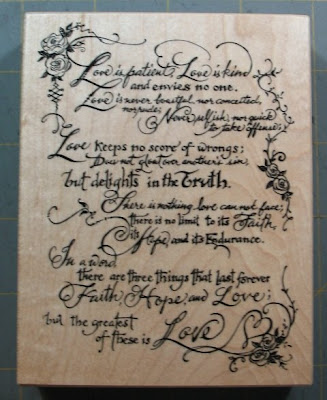 Love is patient; Love is kind
and envies no one.
Love is never boastful, nor conceited,
nor rude;
Never selfish, nor quick
to take offense;
Love keeps no score of wrongs;
Does not gloat over another's sin,
but delights in the Truth.
There is nothing love can not face;
there is no limit to its Faith,
its Hope, and its Endurance.
In a word
there are three things that last forever
Faith, Hope, and Love;
but the greatest
of these is Love